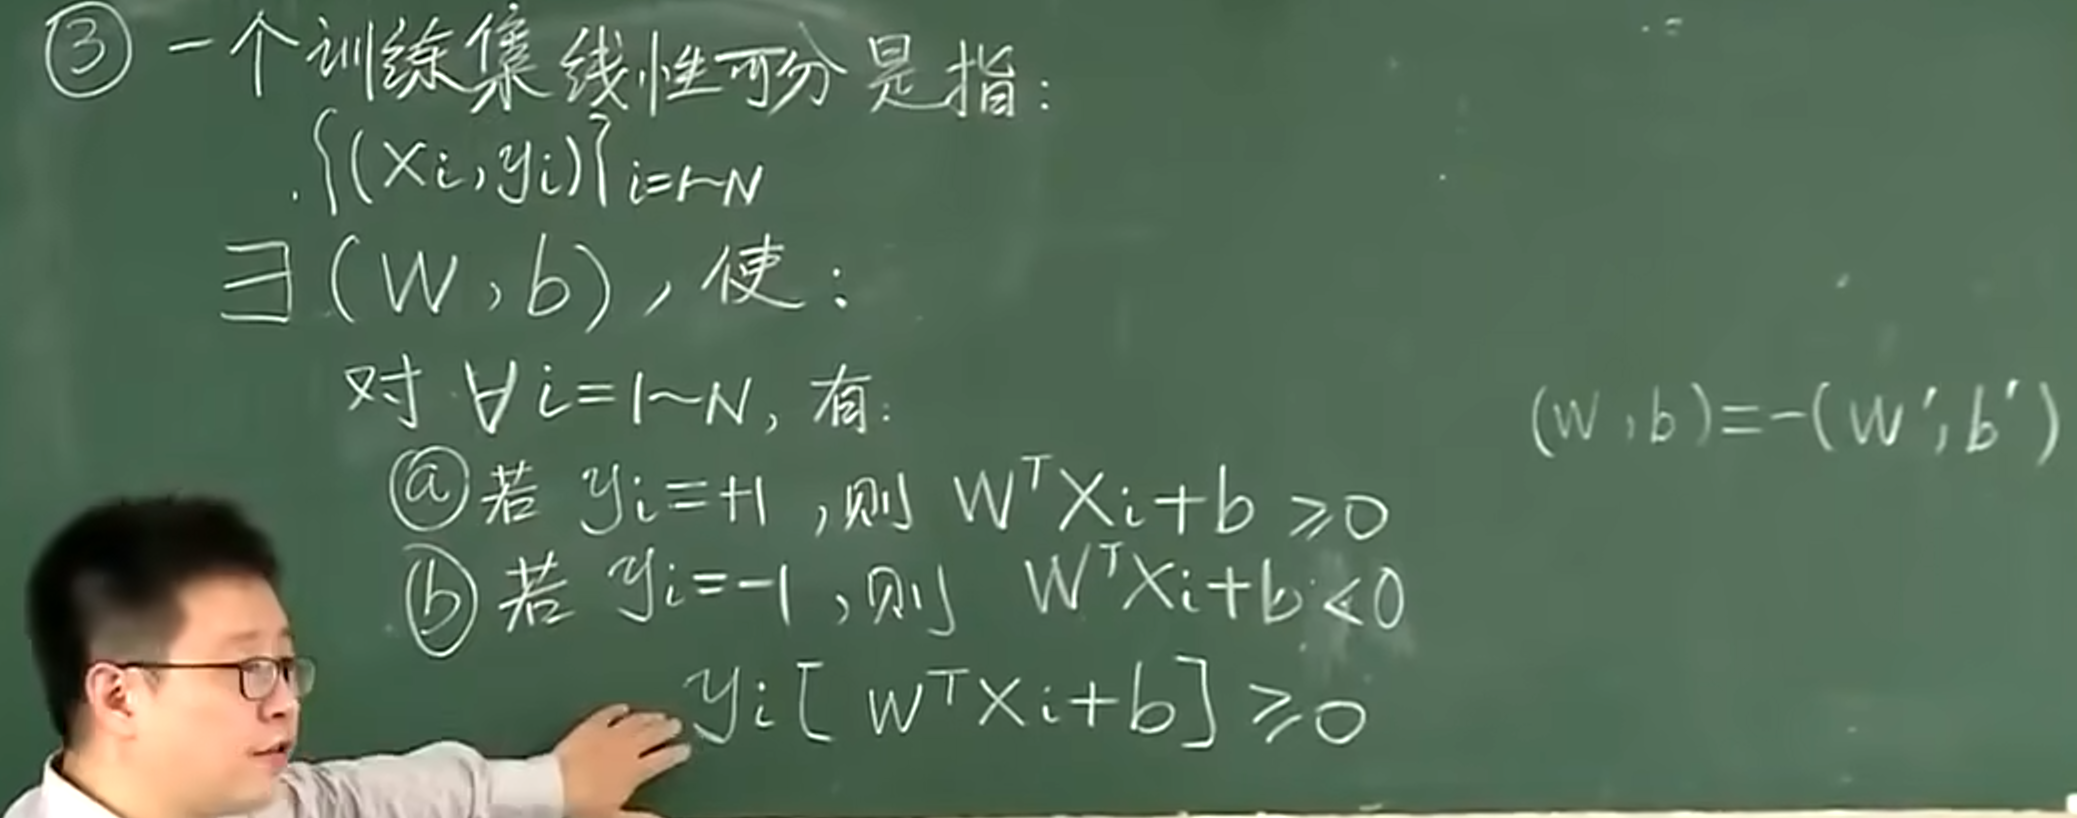 ③ 一个训练集线性可分是指：
{(Xi, yi)}i=1~N
∃(W, b), 使：
对 ∀i=1~N, 有：
(W, b)=-(W′, b′)
ⓐ若 yi=+1, 则 WᵀXi+b ≥0
ⓑ若 yi=-1, 则 WᵀXi+b<0
yi[WᵀXi+b]≥0